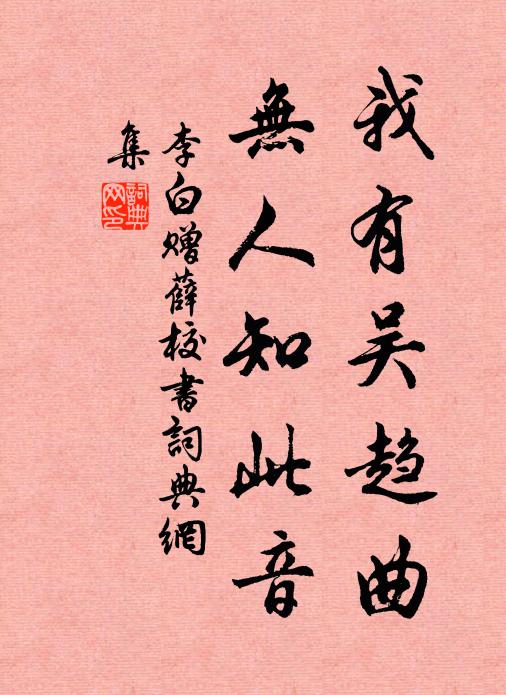 我有吴趋曲
無人知此音
李白赠薛校書詞典網
集
詞典
网印